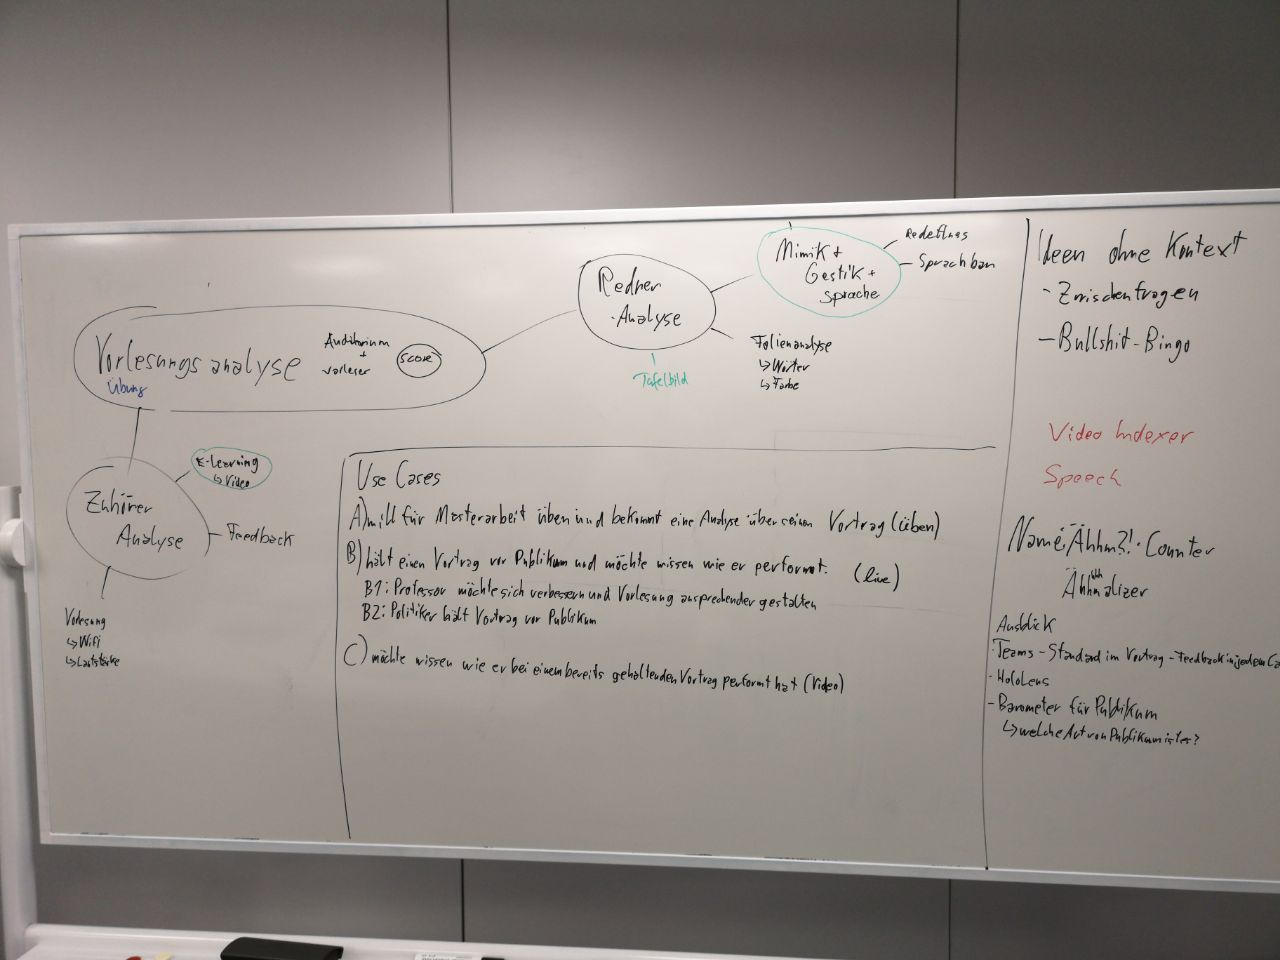 Vorlesungsanalyse
Übung
Auditorium
+
vorleser
Score
Redner
-Analyse
Mimik +
Gestik +
Sprache
Redefluss
Sprachbau
Folienanalyse
↳ Wörter
↳ Farbe
Tafelbild
Zuhörer
Analyse
E-Learning
↳ Video
Feedback
Vorlesung
↳ Wifi
↳ Lautstärke
Use Cases
A) will für Masterarbeit üben und bekommt eine Analyse über seinen Vortrag (üben)
B) hält einen Vortrag vor Publikum und möchte wissen wie er performt. (live)
B1: Professor möchte sich verbessern und Vorlesung ansprechender gestalten
B2: Politiker hält Vortrag vor Publikum
C) möchte wissen wie er bei einem bereits gehaltenden Vortrag performt hat (Video)
Ideen ohne Kontext
- Zwischenfragen
- Bullshit-Bingo
Video Indexer
Speech
Name: Ähhm?!-Counter
Ähhmalizer
Ausblick
- Teams - Standard im Vortrag - Feedback in jedem
- HoloLens
- Barometer für Publikum
↳ welche Art von Publikum ist es?